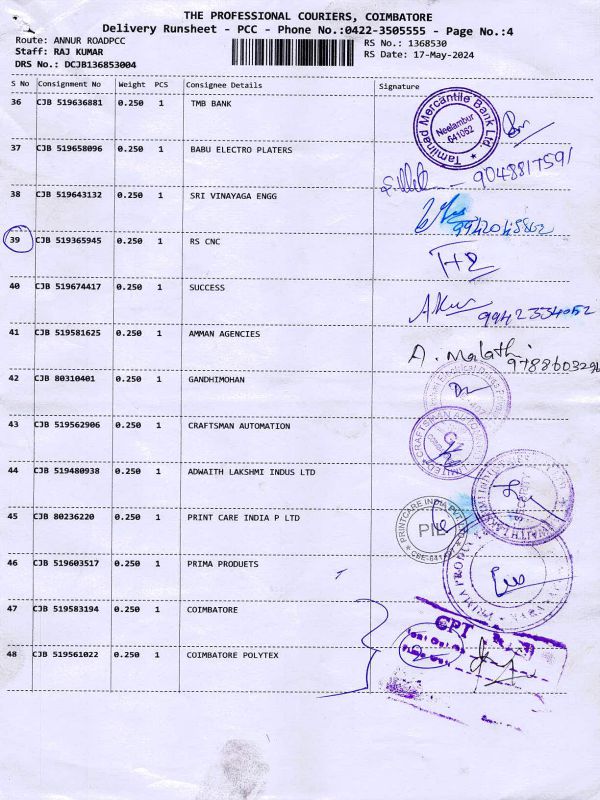 THE PROFESSIONAL COURIERS, COIMBATORE
Delivery Runsheet - PCC - Phone No.:0422-3505555 - Page No.:4
Route: ANNUR ROADPCC
Staff: RAJ KUMAR
DRS No.: DCJB136853004
RS No.: 1368530
RS Date: 17-May-2024
S No Consignment No Weight PCS Consignee Details Signature
36 CJB 519636881 0.250 1 TMB BANK
Tamilnad Mercantile Bank Ltd.
Neelambur
641062
37 CJB 519658096 0.250 1 BABU ELECTRO PLATERS
9048817591
38 CJB 519643132 0.250 1 SRI VINAYAGA ENGG
9942045862
39 CJB 519365945 0.250 1 RS CNC
40 CJB 519674417 0.250 1 SUCCESS
9942334052
41 CJB 519581625 0.250 1 AMMAN AGENCIES
A. Malathi
42 CJB 80310401 0.250 1 GANDHIMOHAN
43 CJB 519562906 0.250 1 CRAFTSMAN AUTOMATION
CRAFTSMAN AUTOM
44 CJB 519480938 0.250 1 ADWAITH LAKSHMI INDUS LTD
45 CJB 80236220 0.250 1 PRINT CARE INDIA P LTD
PRINTCARE INDIA PVT
PIL
46 CJB 519603517 0.250 1 PRIMA PRODUETS
47 CJB 519583194 0.250 1 COIMBATORE
CPT
48 CJB 519561022 0.250 1 COIMBATORE POLYTEX